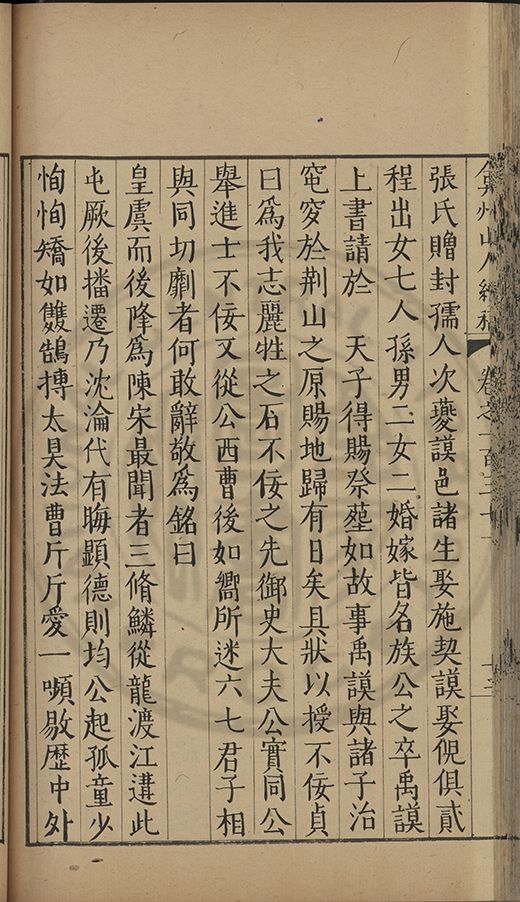 弇州山人續稿 卷之一百三十
張氏贈封孺人次夔謨邑諸生娶施契謨娶倪俱貳
程出女七人孫男二女二婚嫁皆名族公之卒禹謨
上書請於 天子得賜祭塟如故事禹謨與諸子治
窀穸於荆山之原賜地歸有日矣具狀以授不佞貞
曰爲我志麗牲之石不佞之先御史大夫公實同公
舉進士不佞又從公西曹後如嚮所述六七君子相
與同切劘者何敢辭敬爲銘曰
皇虞而後降爲陳宋最聞者三脩鱗從龍渡江遘此
屯厥後播遷乃沈淪代有晦顯德則均公起孤童少
恂恂矯如䨇鵠摶太昊法曹斤斤愛一嚬敭歷中外